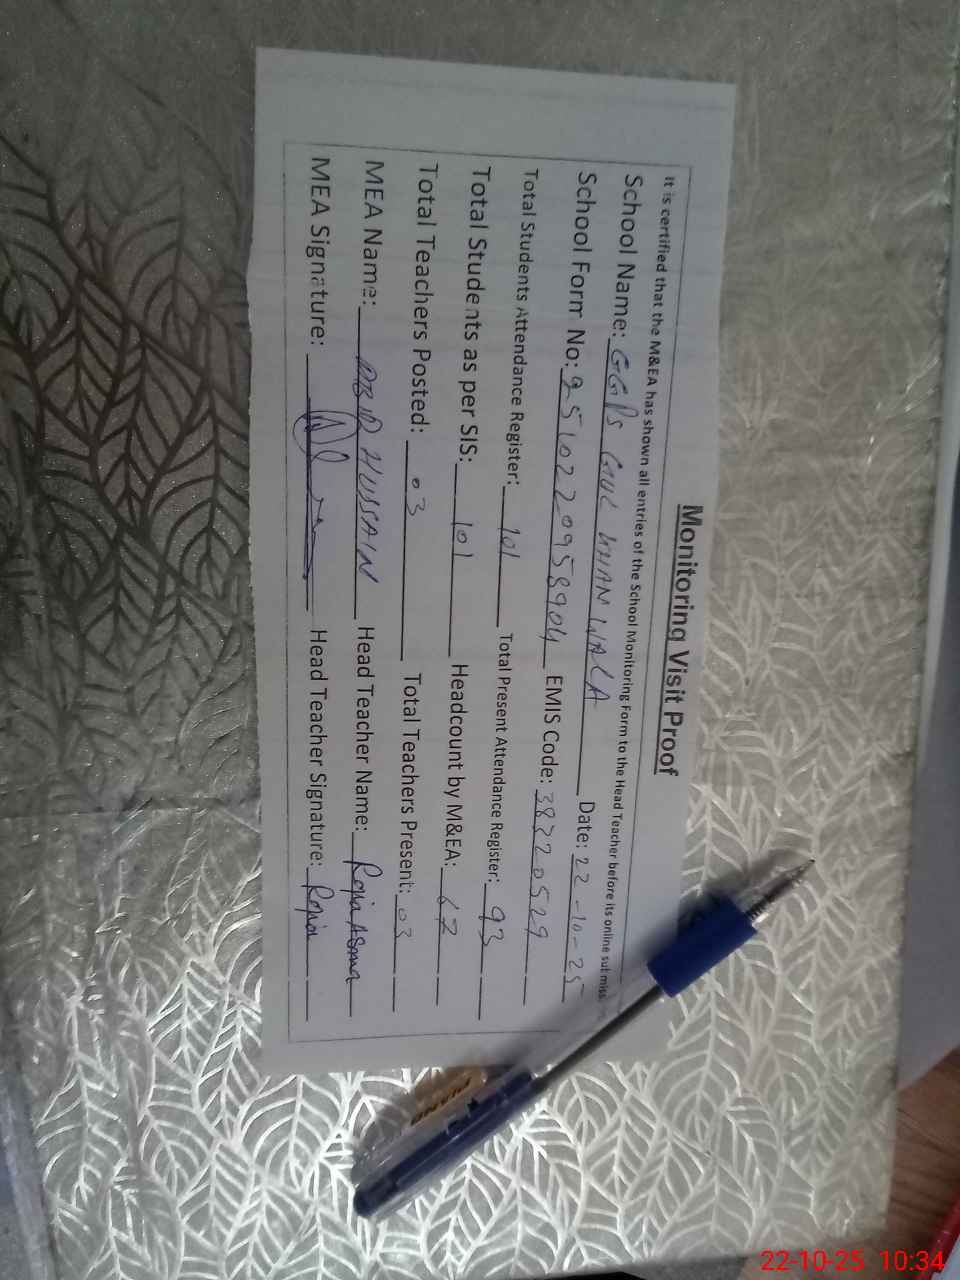 Monitoring Visit Proof
It is certified that the M&EA has shown all entries of the School Monitoring Form to the Head Teacher before its online submiss
School Name: GGPS GUL KHAN WALA Date: 22-10-25
School Form No: 2510220958904 EMIS Code: 38320529
Total Students Attendance Register: 101 Total Present Attendance Register: 93
Total Students as per SIS: 101 Headcount by M&EA: 67
Total Teachers Posted: 03 Total Teachers Present: 03
MEA Name: ABID HUSSAIN Head Teacher Name: Robia Asma
MEA Signature: Head Teacher Signature: Robia
PIANO
22-10-25 10:34